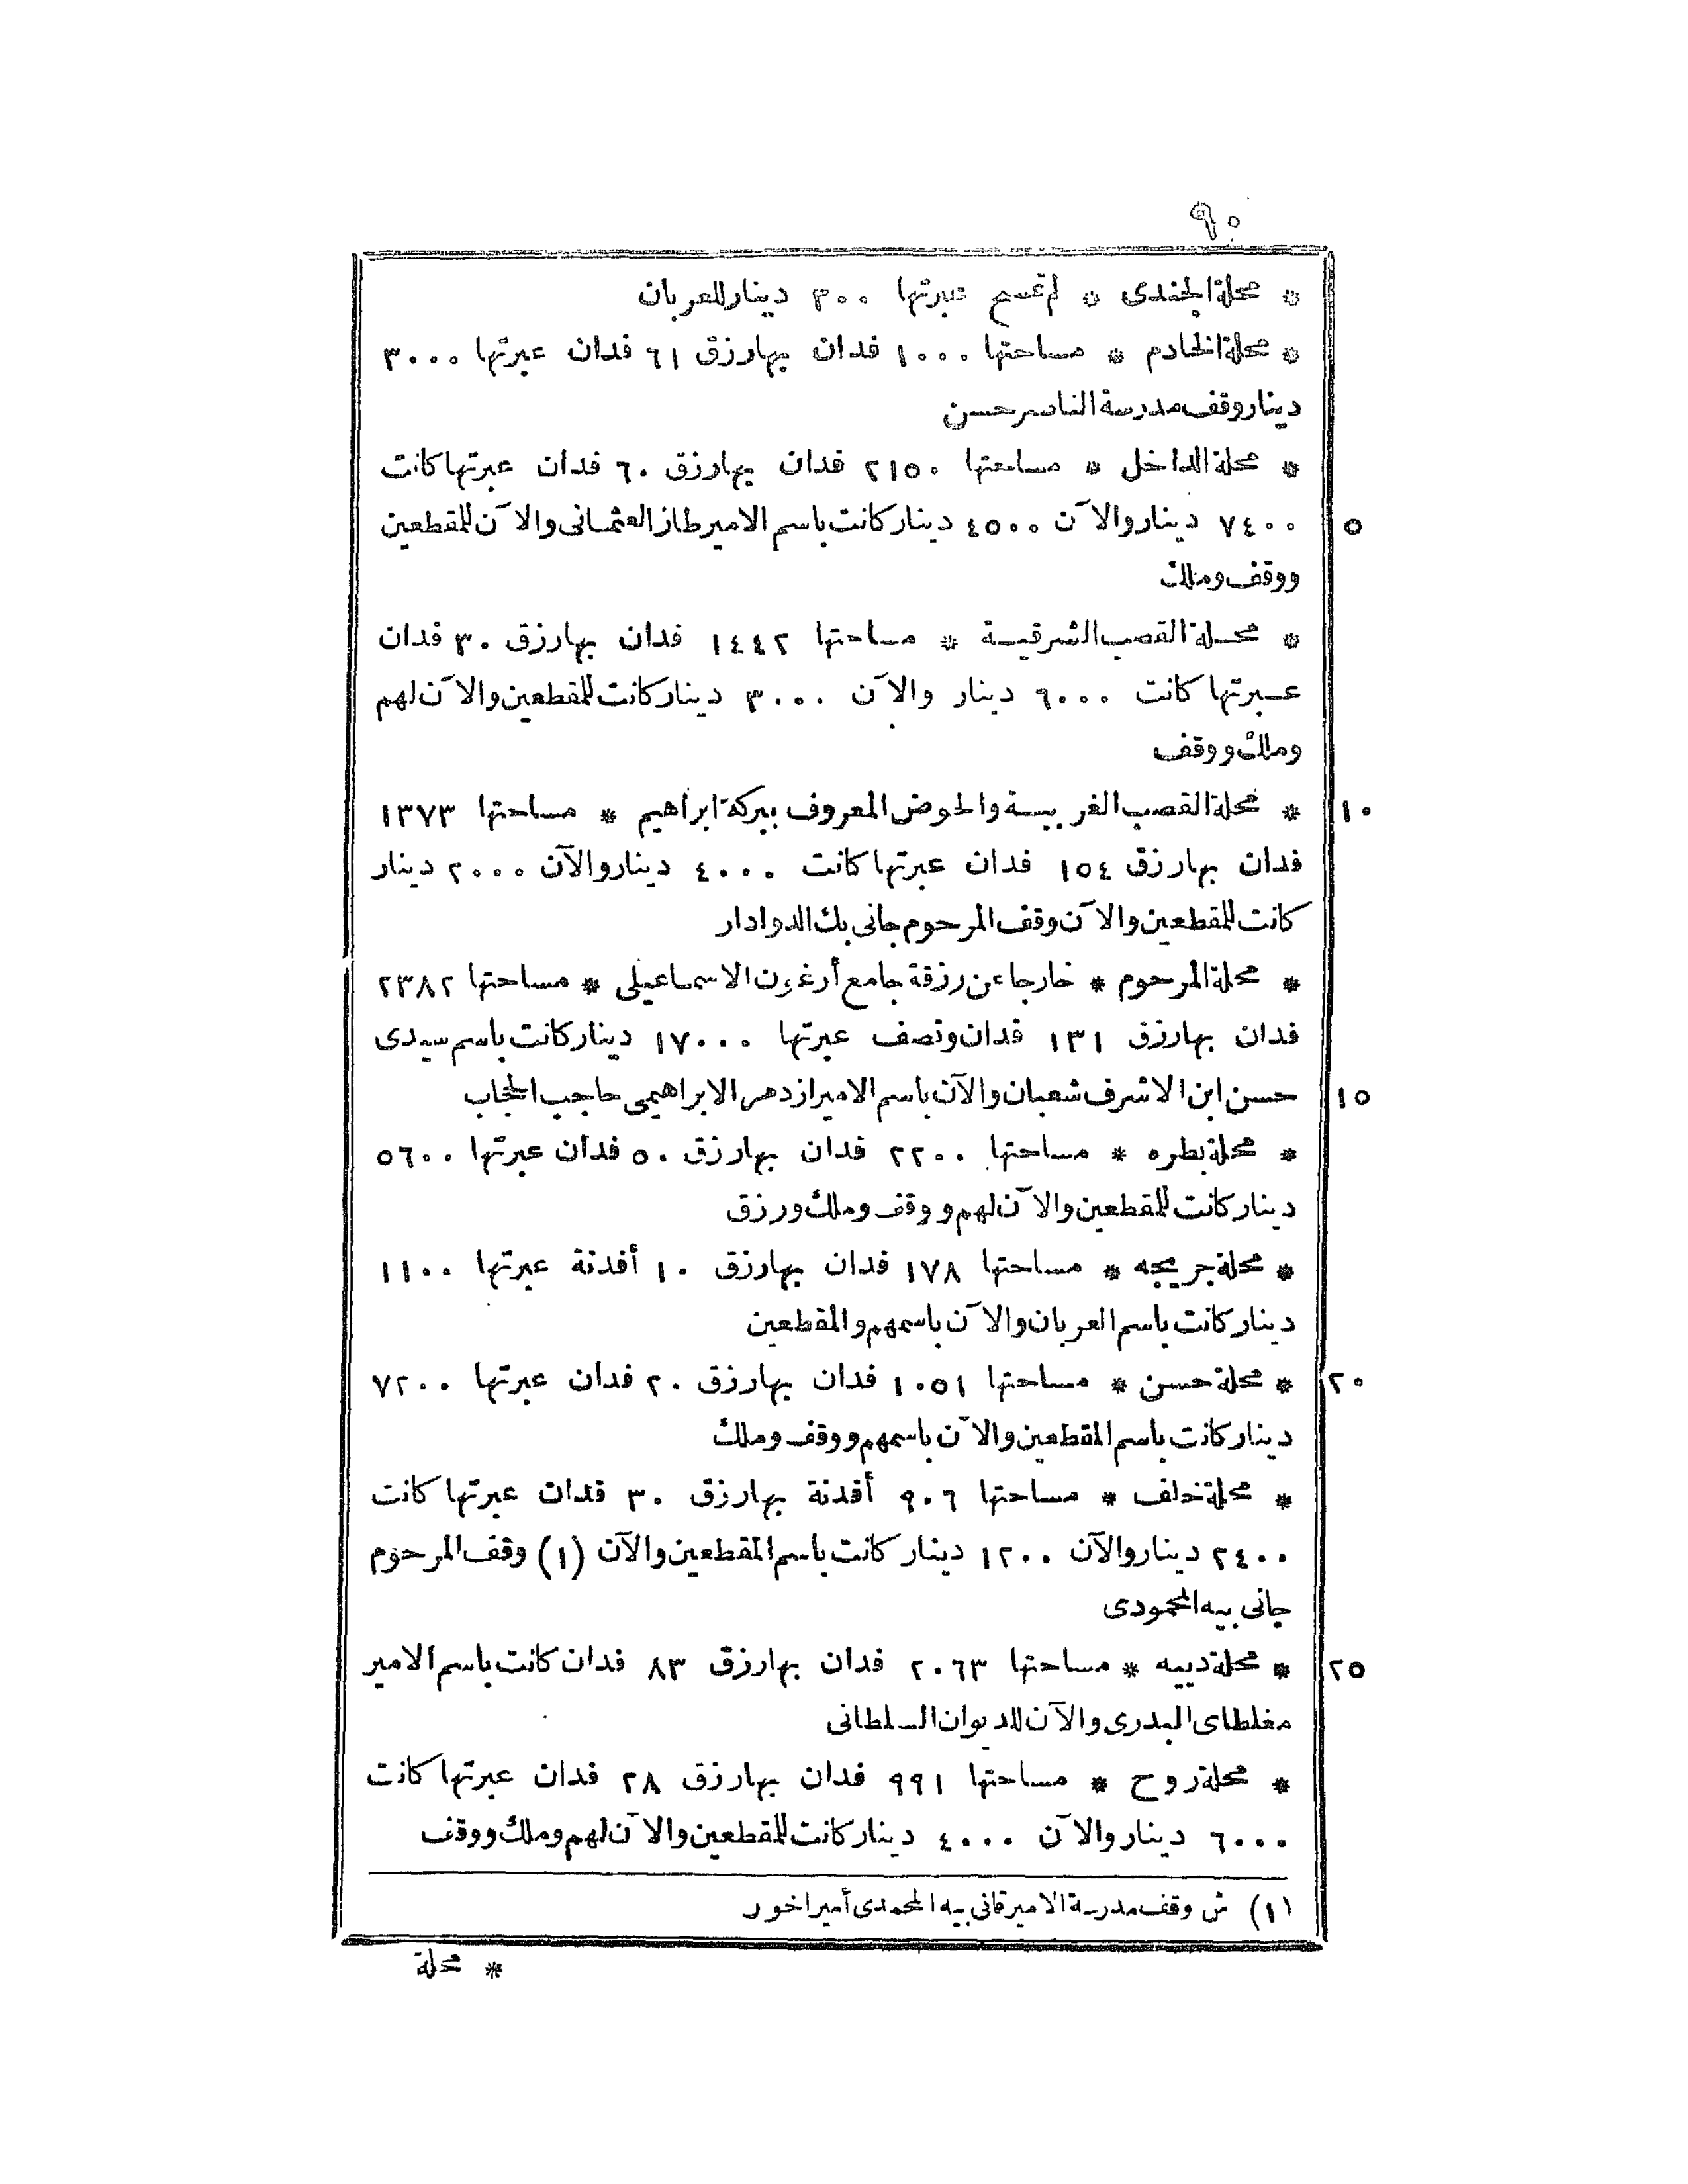 ٩٠
* محلة الجندى * لم تمسح عبرتها ٣٠٠ دينار للعربان
* محلة الخادم * مساحتها ١٠٠٠ فدان بها رزق ٦١ فدان عبرتها ٣٠٠٠
دينار وقف مدرسة الناصر حسن
* محلة الداخل * مساحتها ٢١٥٠ فدان بها رزق ٦٠ فدان عبرتها كانت
٥ ٧٤٠٠ دينار والآن ٤٥٠٠ دينار كانت باسم الامير طاز العثمانى والآن للمقطعين
ووقف وملك
* محلة القصب الشرقية * مساحتها ١٤٤٢ فدان بها رزق ٣٠ فدان
عبرتها كانت ٦٠٠٠ دينار والآن ٣٠٠٠ دينار كانت للمقطعين والآن لهم
وملك ووقف
١٠ * محلة القصب الغربية والحوض المعروف ببركة ابراهيم * مساحتها ١٣٧٣
فدان بها رزق ١٥٤ فدان عبرتها كانت ٤٠٠٠ دينار والآن ٢٠٠٠ دينار
كانت للمقطعين والآن وقف المرحوم جانى بك الدوادار
* محلة المرحوم * خارجا عن رزقة جامع أرغون الاسماعيلى * مساحتها ٢٣٨٢
فدان بها رزق ١٣١ فدان ونصف عبرتها ١٧٠٠٠ دينار كانت باسم سيدى
١٥ حسن ابن الاشرف شعبان والآن باسم الامير ازدمر الابراهيمى حاجب الحجاب
* محلة بطره * مساحتها ٢٢٠٠ فدان بها رزق ٥٠ فدان عبرتها ٥٦٠٠
دينار كانت للمقطعين والآن لهم ووقف وملك ورزق
* محلة جريجه * مساحتها ١٧٨ فدان بها رزق ١٠ أفدنة عبرتها ١١٠٠
دينار كانت باسم العربان والآن باسمهم والمقطعين
٢٠ * محلة حسن * مساحتها ١٠٥١ فدان بها رزق ٢٠ فدان عبرتها ٧٢٠٠
دينار كانت باسم المقطعين والآن باسمهم ووقف وملك
* محلة خلف * مساحتها ٩٠٦ أفدنة بها رزق ٣٠ فدان عبرتها كانت
٢٤٠٠ دينار والآن ١٢٠٠ دينار كانت باسم المقطعين والآن (١) وقف المرحوم
جانى بيه المحمودى
٢٥ * محلة دييه * مساحتها ٢٠٦٣ فدان بها رزق ٨٣ فدان كانت باسم الامير
مغلطاى البدرى والآن للديوان السلطانى
* محلة روح * مساحتها ٩٩١ فدان بها رزق ٢٨ فدان عبرتها كانت
٦٠٠٠ دينار والآن ٤٠٠٠ دينار كانت للمقطعين والآن لهم وملك ووقف
(١) ش وقف مدرسة الامير قانى بيه المحمدى أمير اخور
* محلة